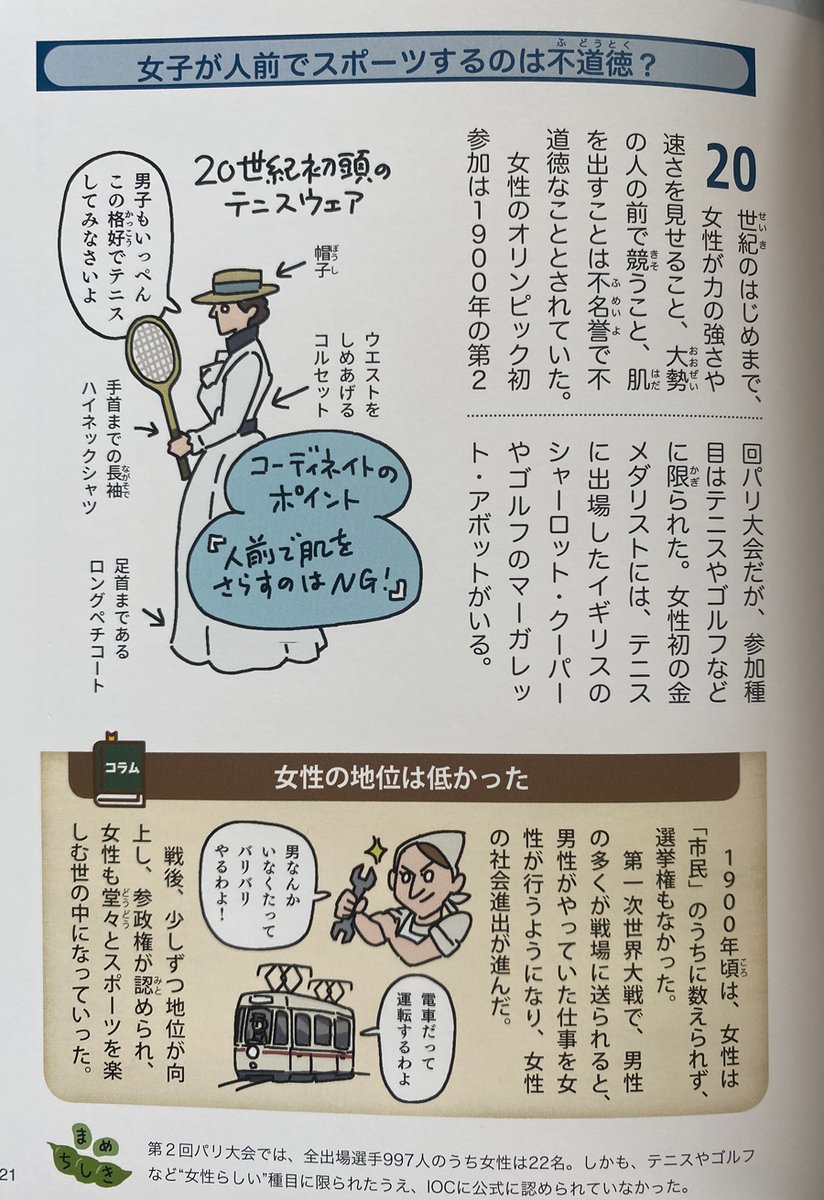 女子が人前でスポーツするのは不道徳？
20世紀のはじめまで、
女性が力の強さや
速さを見せること、大勢
の人の前で競うこと、肌
を出すことは不名誉で不
道徳なこととされていた。
女性のオリンピック初
参加は1900年の第2
回パリ大会だが、参加種
目はテニスやゴルフなど
に限られた。女性初の金
メダリストには、テニス
に出場したイギリスの
シャーロット・クーパー
やゴルフのマーガレッ
ト・アボットがいる。
20世紀初頭の
テニスウェア
男子もいっぺん
この格好でテニス
してみなさいよ
帽子
ウエストを
しめあげる
コルセット
手首までの長袖
ハイネックシャツ
コーディネイトの
ポイント
『人前で肌を
さらすのはNG！』
足首まである
ロングペチコート
コラム
女性の地位は低かった
1900年頃は、女性は
「市民」のうちに数えられず、
選挙権もなかった。
第一次世界大戦で、男性
の多くが戦場に送られると、
男性がやっていた仕事を女
性が行うようになり、女性
の社会進出が進んだ。
男なんか
いなくたって
バリバリ
やるわよ！
電車だって
運転するわよ
戦後、少しずつ地位が向
上し、参政権が認められ、
女性も堂々とスポーツを楽
しむ世の中になっていった。
まめ
ちしき
第2回パリ大会では、全出場選手997人のうち女性は22名。しかも、テニスやゴルフ
など“女性らしい”種目に限られたうえ、IOCに公式に認められていなかった。
21